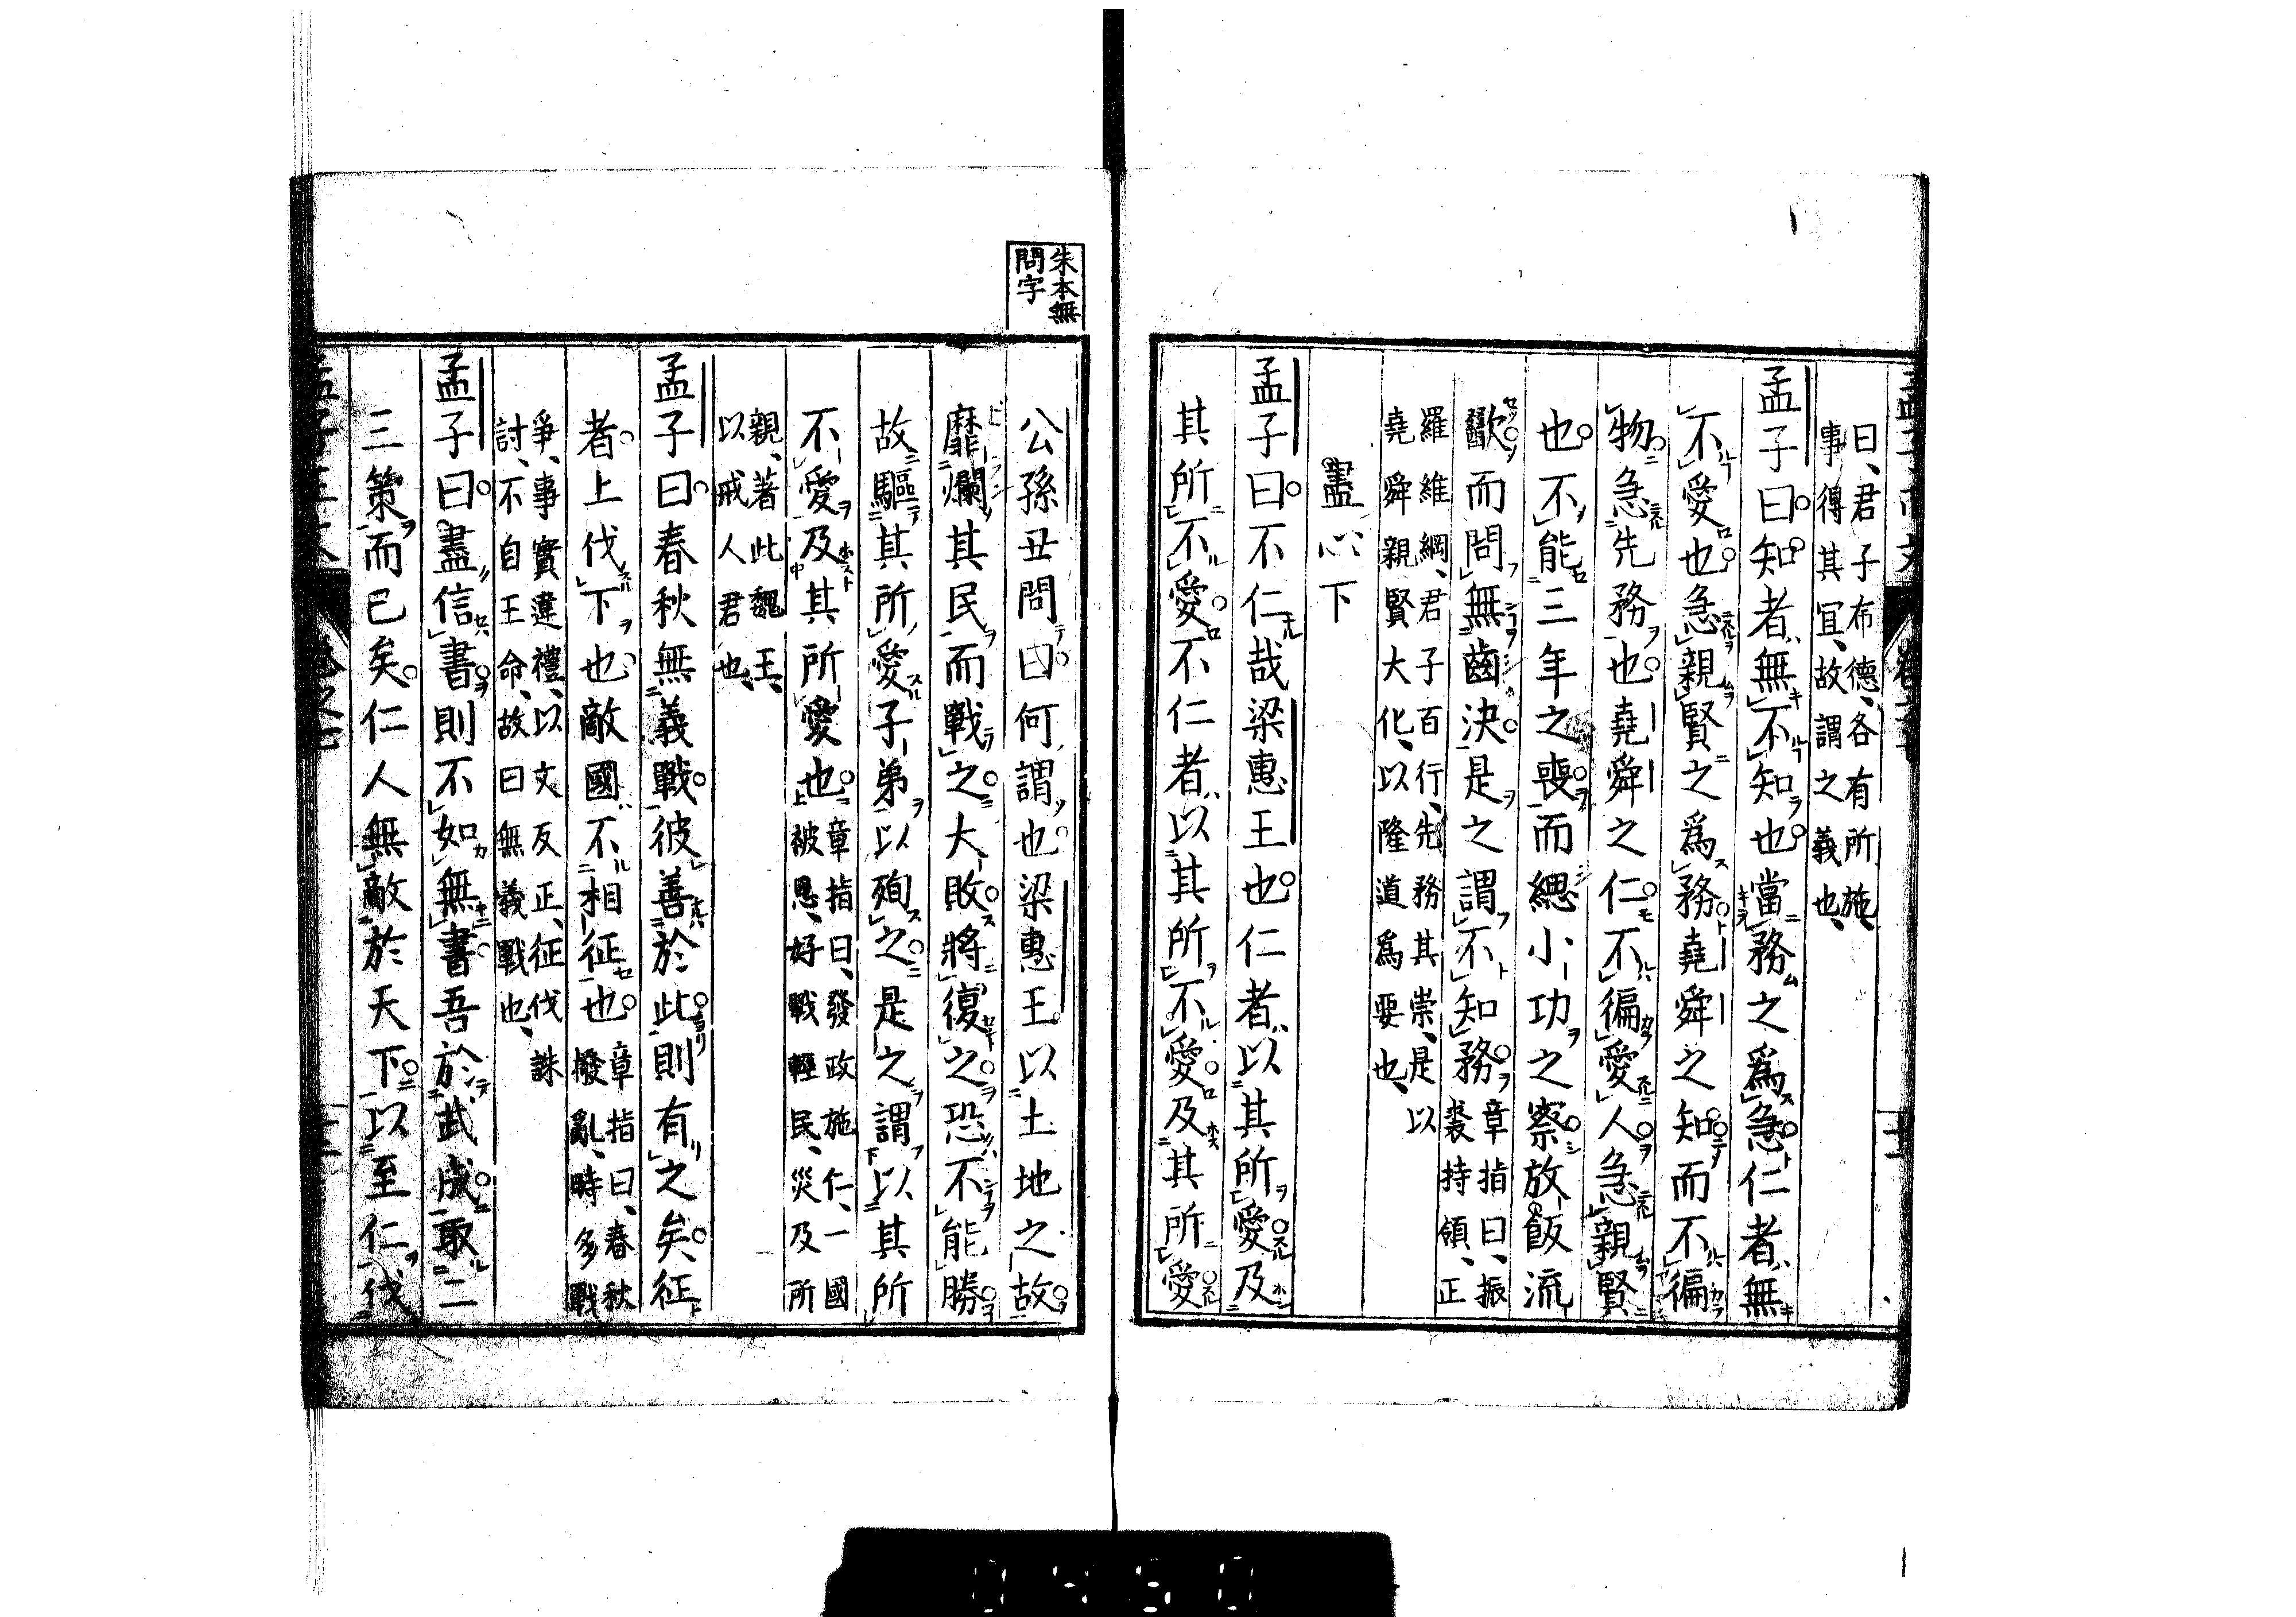 曰、君子布德、各有所施、
事得其宜、故謂之義也、
孟子曰知者無不知也當務之爲急仁者無
不愛也急親賢之爲務堯舜之知而不徧
物急先務也堯舜之仁不徧愛人急親賢
也不能三年之喪而緦小功之察放飯流
歠而問無齒決是之謂不知務
章指曰、振
裘持領、正
羅維綱、君子百行、先務其崇、是以
堯舜親賢大化、以隆道爲要也、
盡心下
孟子曰不仁哉梁惠王也仁者以其所愛及
其所不愛不仁者以其所不愛及其所愛
朱本無
問字
公孫丑問曰何謂也梁惠王以土地之故
靡爛其民而戰之大敗將復之恐不能勝
故驅其所愛子弟以殉之是之謂以其所
不愛及其所愛也
章指曰、發政施仁、一國
被恩、好戰輕民、災及所
親、著此魏王、
以戒人君也、
孟子曰春秋無義戰彼善於此則有之矣征
者上伐下也敵國不相征也
章指曰、春秋
撥亂、時多戰
爭、事實違禮、以文反正、征伐誅
討、不自王命、故曰無義戰也、
孟子曰盡信書則不如無書吾於武成取二
三策而已矣仁人無敵於天下以至仁伐